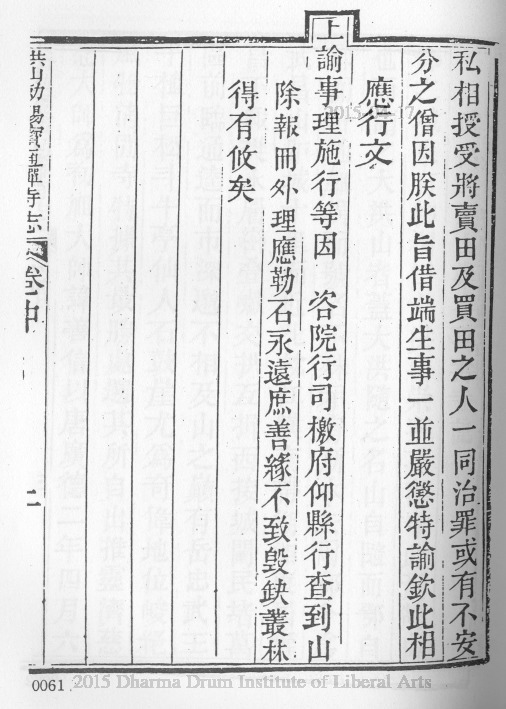 私相授受將賣田及買田之人一同治罪或有不安
分之僧因朕此旨借端生事一並嚴懲特諭欽此相
應行文
上諭事理施行等因 咨院行司檄府仰縣行查到山
除報冊外理應勒石永遠庶善緣不致毀缺叢林
得有攸矣
寺志 卷中
二
0061
2015 Dharma Drum Institute of Liberal Arts